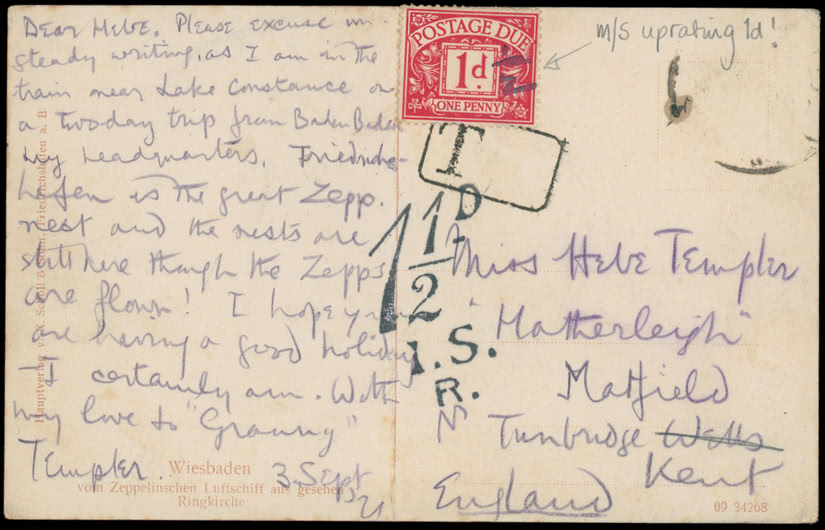 Dear Hebe. Please excuse un-
steady writing, as I am in the
train near Lake Constance on
a two-day trip from Baden Baden
my headquarters. Friedrichs-
hafen is the great Zepp.
nest and the nests are
still here though the Zepps
are flown! I hope you
are having a good holiday
I certainly am. With
my love to "Granny"
Templer.
3 Sept
21
Hauptvertrieb v. Friedrichshafen a. B.
Wiesbaden
vom Zeppelinschen Luftschiff aus gesehen
Ringkirche
POSTAGE DUE
1d
ONE PENNY
1/2
m/s uprating 1d!
T
1 1/2 D
I.S.
R.
Miss Hebe Templer
"Hatherleigh"
Matfield
Nr Tunbridge Wells
Kent
England
09 34268